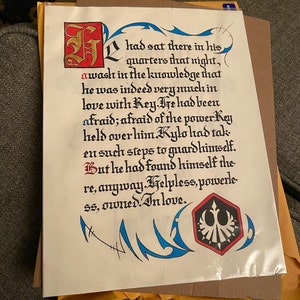 Ko had sat there in his
quarters that night,
awash in the knowledge that
he was indeed very much in
love with Rey. He had been
afraid; afraid of the power Rey
held over him. Kylo had tak-
en such steps to guard himself.
But he had found himself the-
re, anyway. Helpless, powerle-
ss, owned. In love.